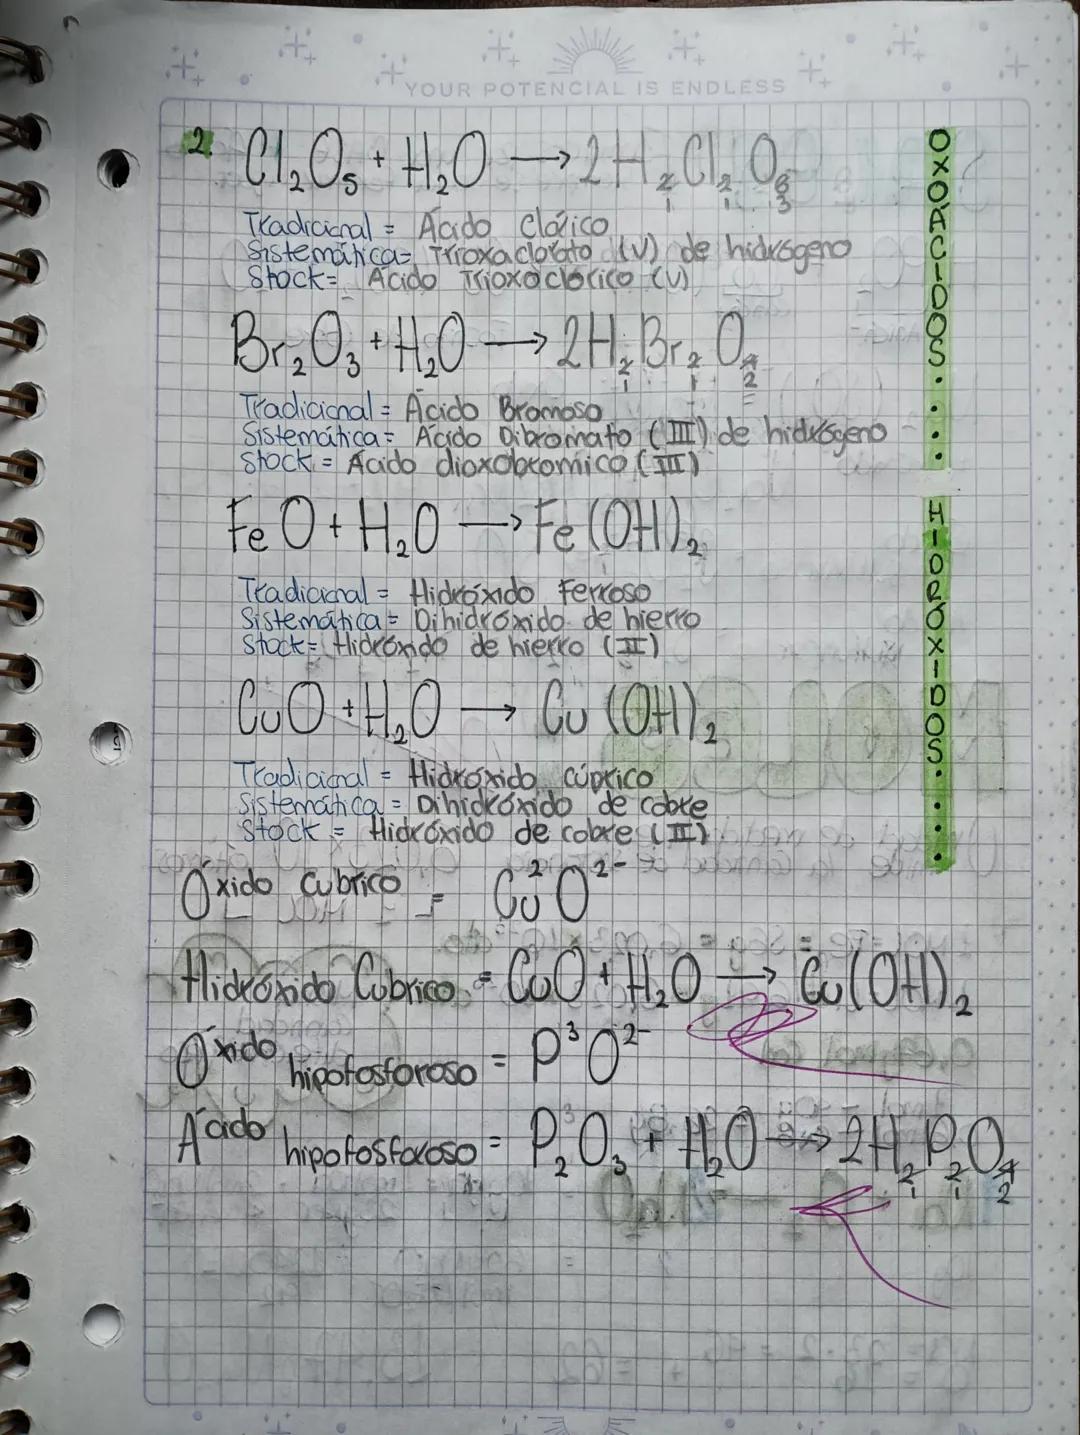 YOUR POTENCIAL IS ENDLESS
2. Cl₂O₅ + H₂O → 2H₂Cl₂O₆
1 1 3
Tradicional = Ácido Clórico
Sistemática = Trioxaclorato (V) de hidrógeno
Stock = Ácido Trioxoclórico (V)
Br₂O₃ + H₂O → 2H₂Br₂O₄
1 1 2
Tradicional = Ácido Bromoso
Sistemática = Ácido Dibromato (III) de hidrógeno
Stock = Ácido dioxobromico (III)
FeO + H₂O → Fe(OH)₂
Tradicional = Hidróxido Ferroso
Sistemática = Dihidróxido de hierro
Stock = Hidróxido de hierro (II)
CuO + H₂O → Cu (OH)₂
Tradicional = Hidróxido cúprico
Sistemática = Dihidróxido de cobre
Stock = Hidróxido de cobre (II)
Óxido Cubrico = Cu²O²⁻
Hidróxido Cubrico = CuO + H₂O → Cu(OH)₂
Óxido hipofosforoso = P³O²⁻
Ácido hipofosforoso = P₂O₃ + H₂O → 2H₂P₂O₄
1 1 2
OXOACIDOS...
HIDRÓXIDOS...